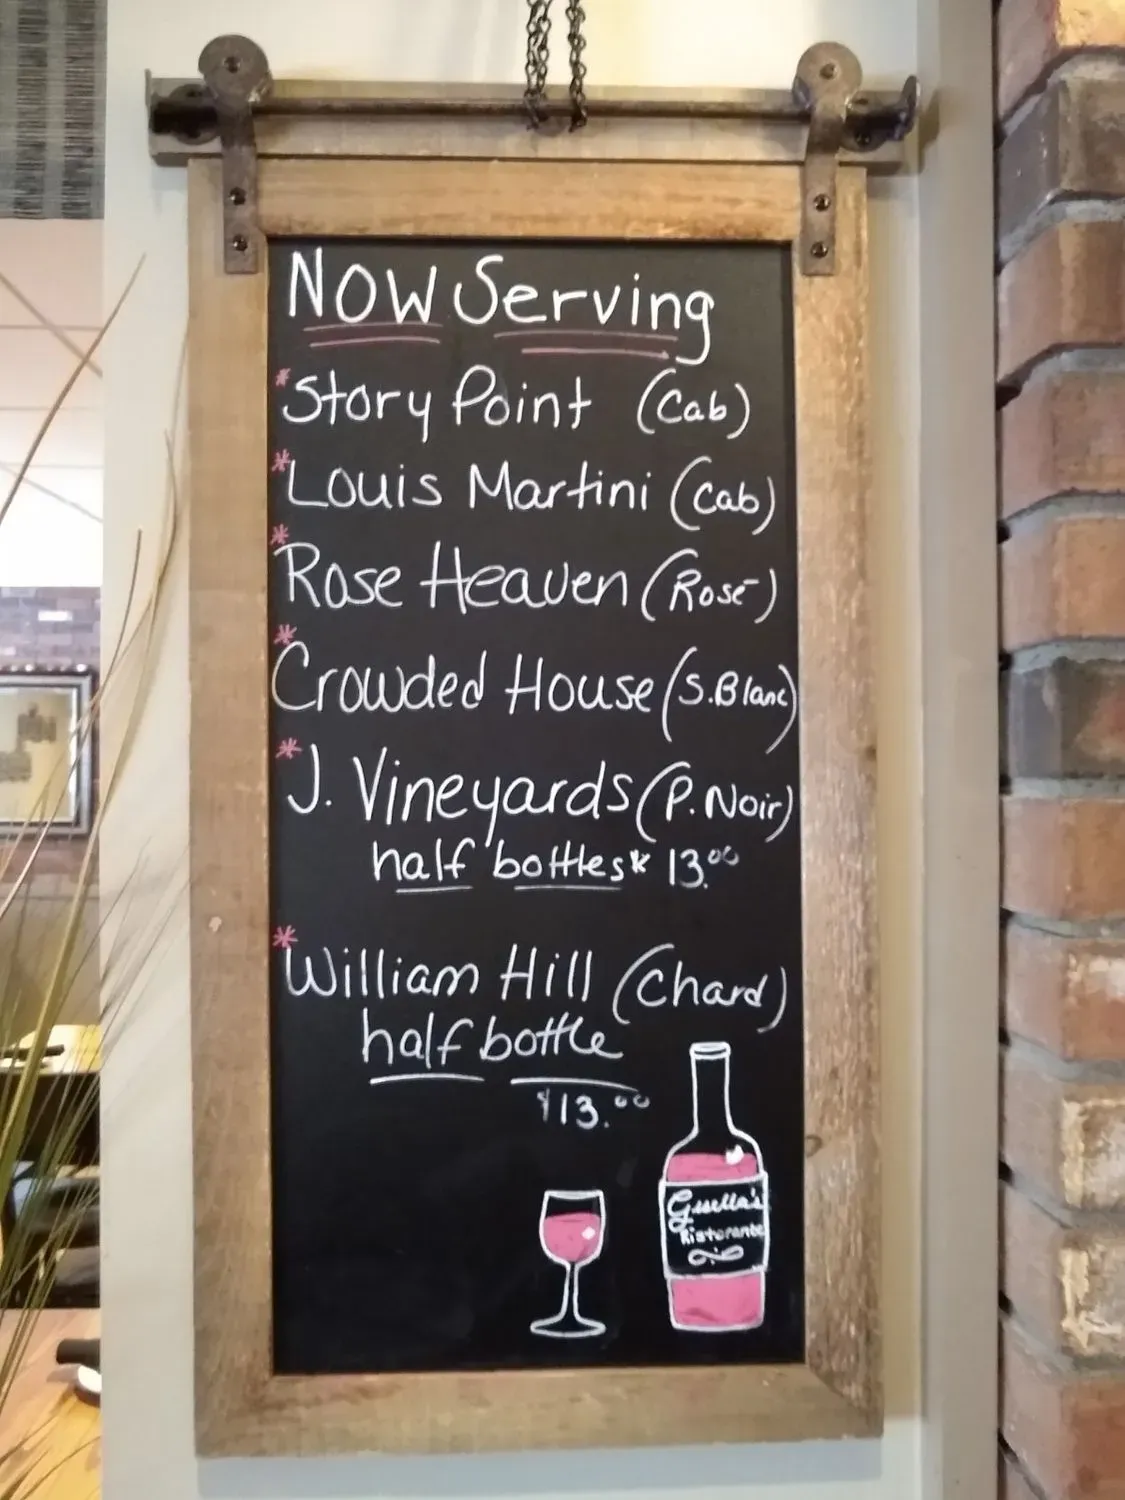 Now Serving
*Story Point (Cab)
*Louis Martini (Cab)
*Rose Heaven (Rosé)
*Crowded House (S.Blanc)
*J. Vineyards (P. Noir)
half bottles* 13.00
*William Hill (Chard)
half bottle
$13.00
Gisella's
Ristorante